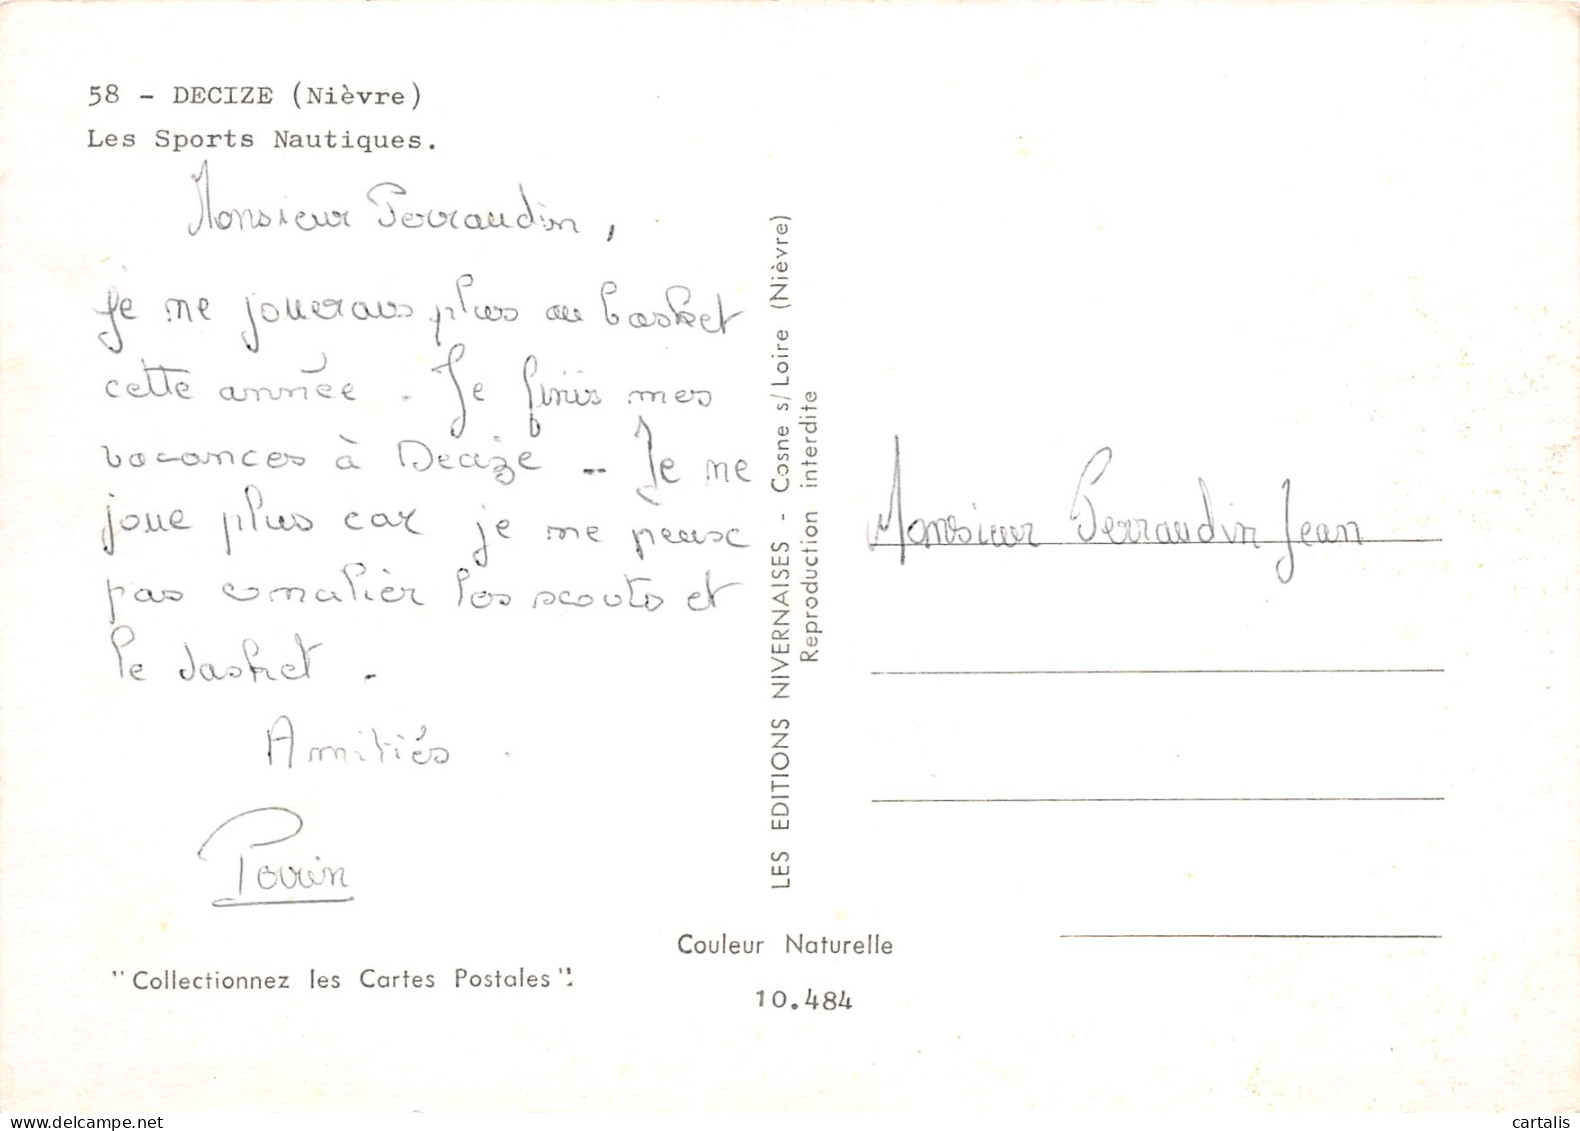 58 - DECIZE (Nièvre)
Les Sports Nautiques.
Monsieur Perraudin,
Je ne jouerais plus au basket
cette année. Je finis mes
vacances à Decize -- Je ne
joue plus car je ne peusc
pas comalier los scouts et
le basket.
Amitiés.
Perrin
"Collectionnez les Cartes Postales".
LES EDITIONS NIVERNAISES - Cosne s/Loire (Nièvre)
Reproduction interdite
Couleur Naturelle
10.484
Monsieur Perraudin Jean
delcampe.net
cartalis